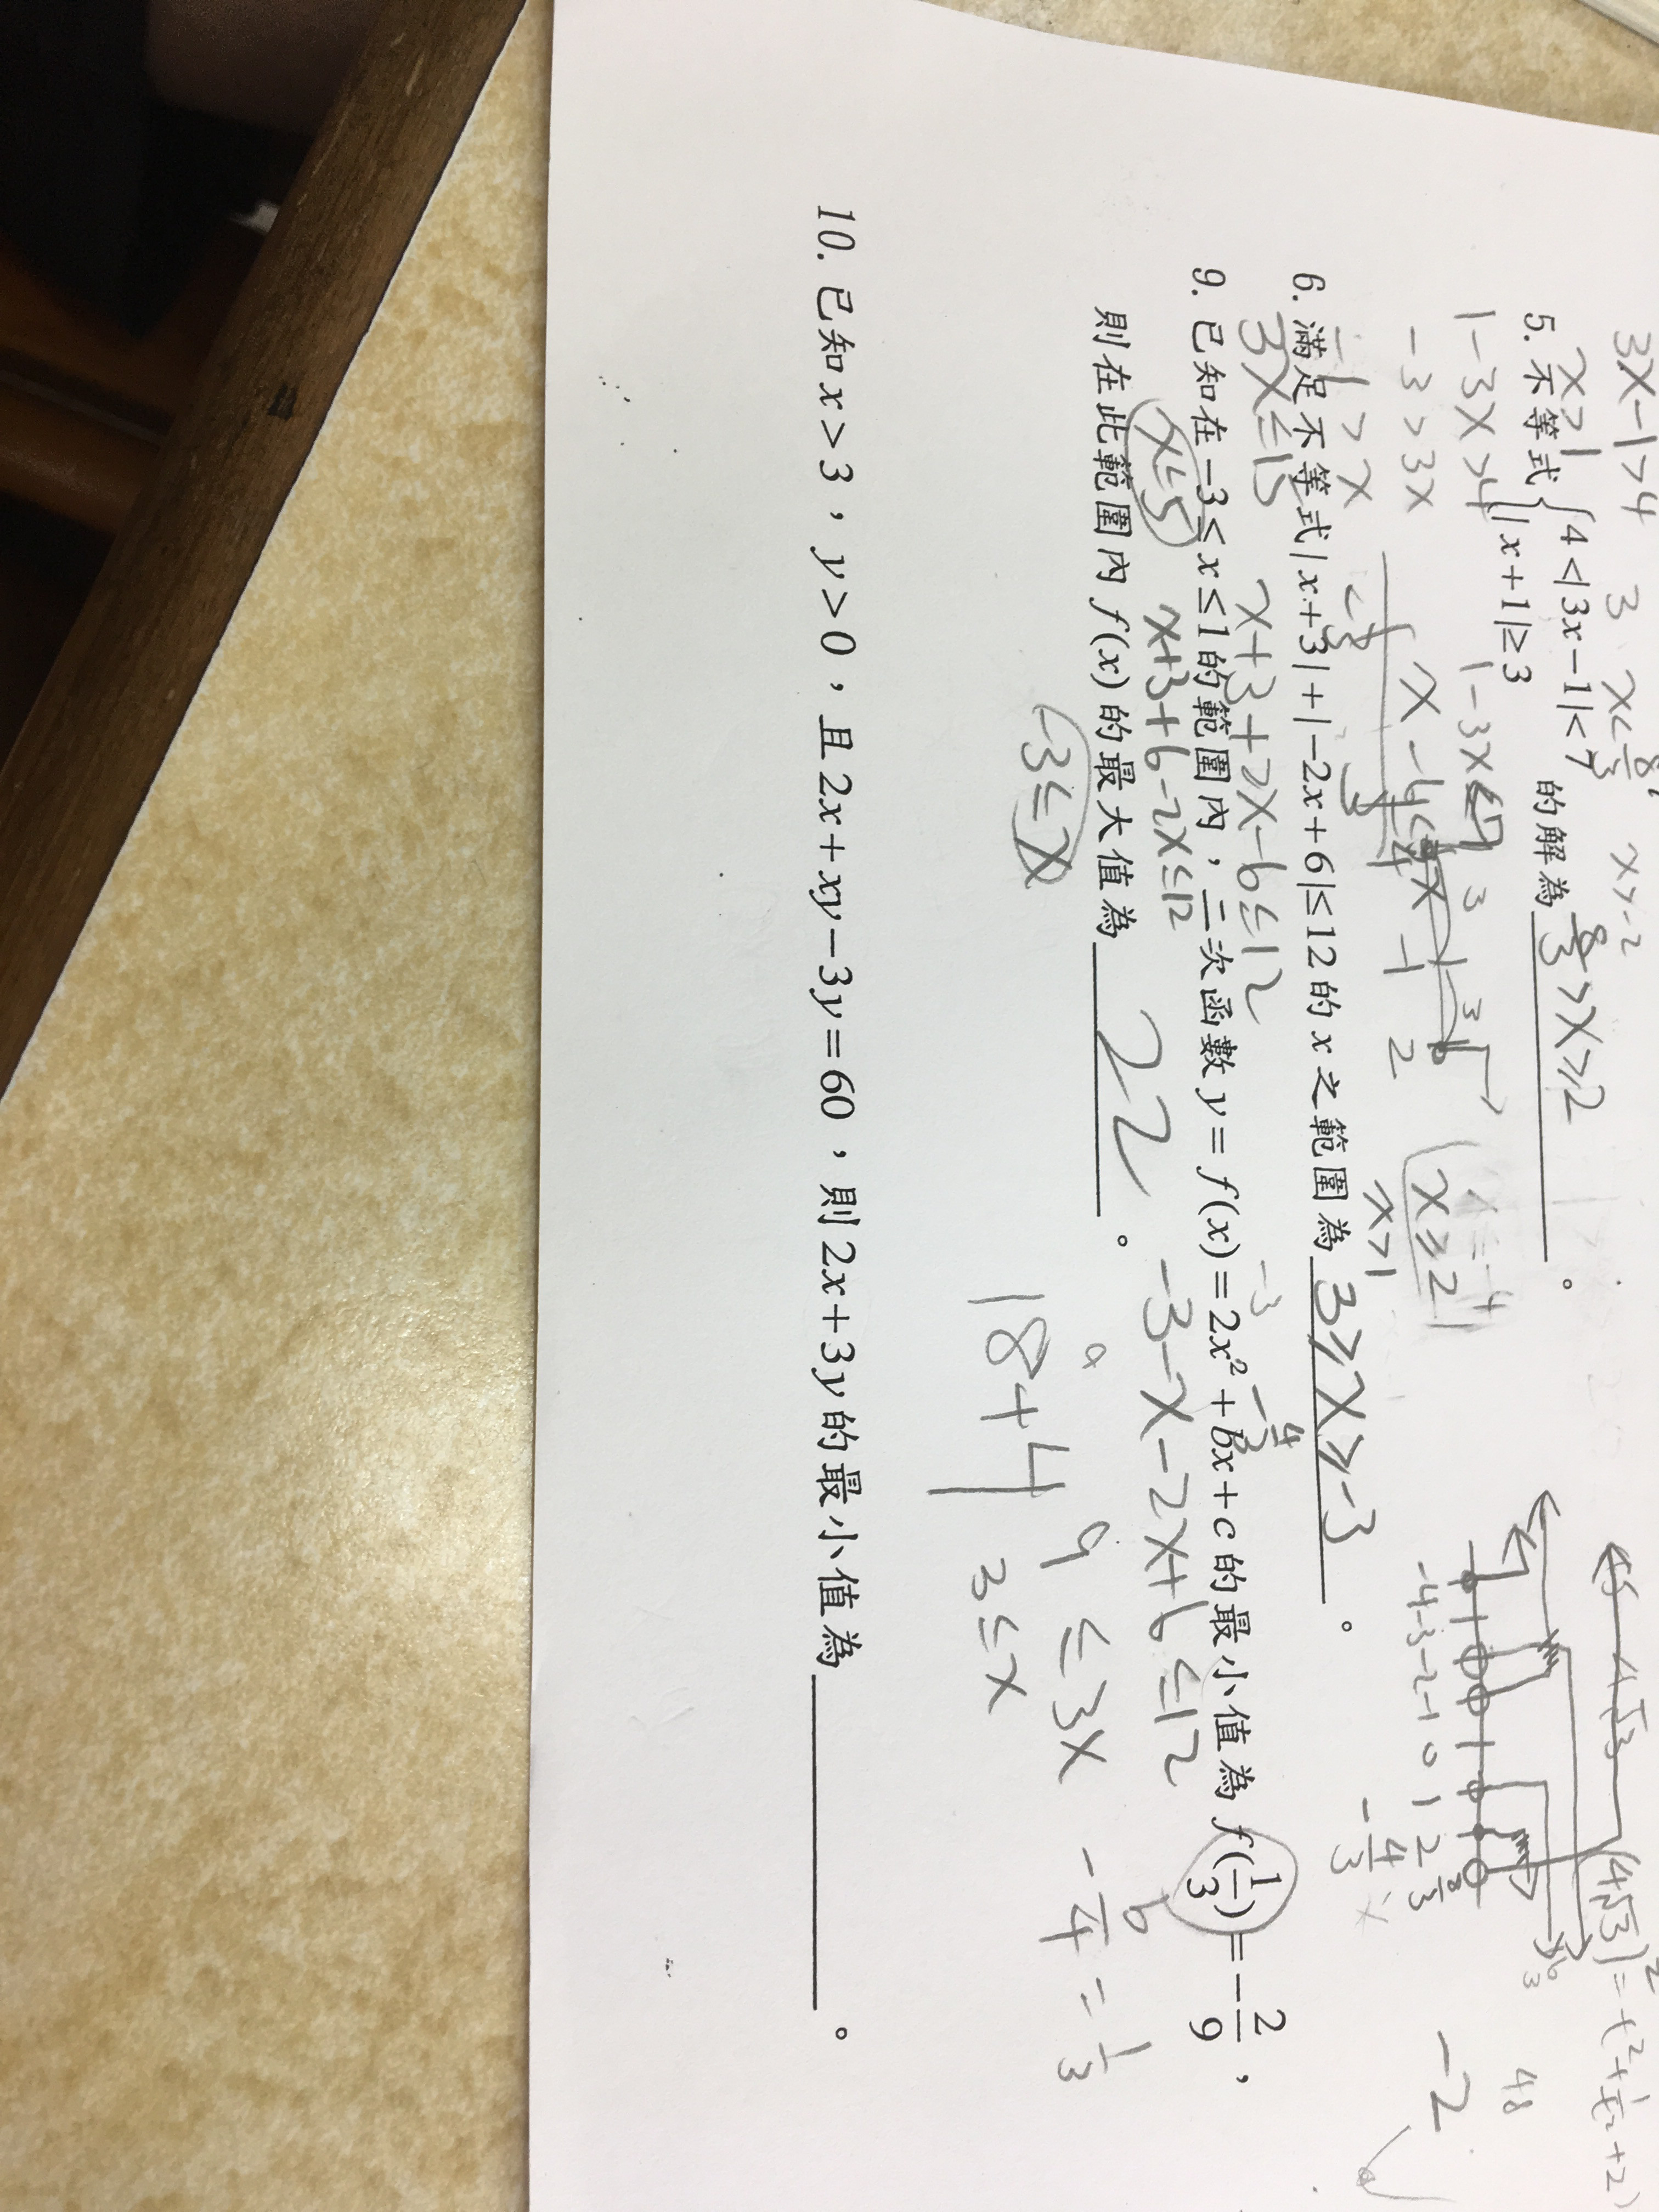 3x-1>4 3 x<8/3 x>-2
x>1
5. 不等式{4<|3x-1|<7 |x+1|≥3 的解為 8/3>x≥2 。
1-3x>4 1-3x<7 3
-3>3x x-4 -1 2 x≥2
-1>x x>1
6. 滿足不等式|x+3|+|-2x+6|≤12的x之範圍為 3≥x≥-3 。
3x≤15 x+3+2x-6≤12
9. 已知在-3≤x≤1的範圍內,二次函數y=f(x)=2x²+bx+c的最小值為f(1/3)=-2/9,
x≤5 x+3+6-2x≤12 -3-x-2x+6≤12
則在此範圍內f(x)的最大值為 22 。
-3≤x 18+4 9≤3x -b/4=1/3
3≤x
10. 已知x>3,y>0,且2x+xy-3y=60,則2x+3y的最小值為 。
4√3 (4√3)²=t²+1/t²+2
-4-3-2-1 0 1 2 8/3
-4/3
48
-2